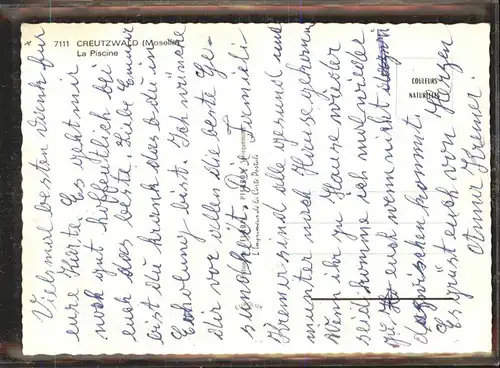 7111 CREUTZWALD (Moselle)
La Piscine
COULEURS
NATURELLES
Vielsmal besten dank für
eure Karte. Es geht mir
noch gut hoffentlich bei
euch das beste. Liebe Emmi
bist du krank das o du in
Erholung bist. Ich wünsche
dir vor allen die beste Ge-
sundheit. Die Familie
Kremer sind alle gesund und
munter nach Hause gekommen
Wenn ihr zu Hause wieder
seid komme ich mal wieder
zu euch wenn nicht
dazwischen kommt.
Es grüst euch von Herzen
Otmar Kremer